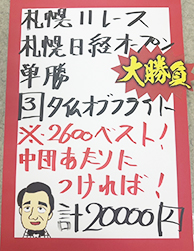 札幌11レース
札幌日経オープン
単勝
大勝負
③タイムオブフライト
※2600ベスト!
中団あたりに
つければ!
計20000円